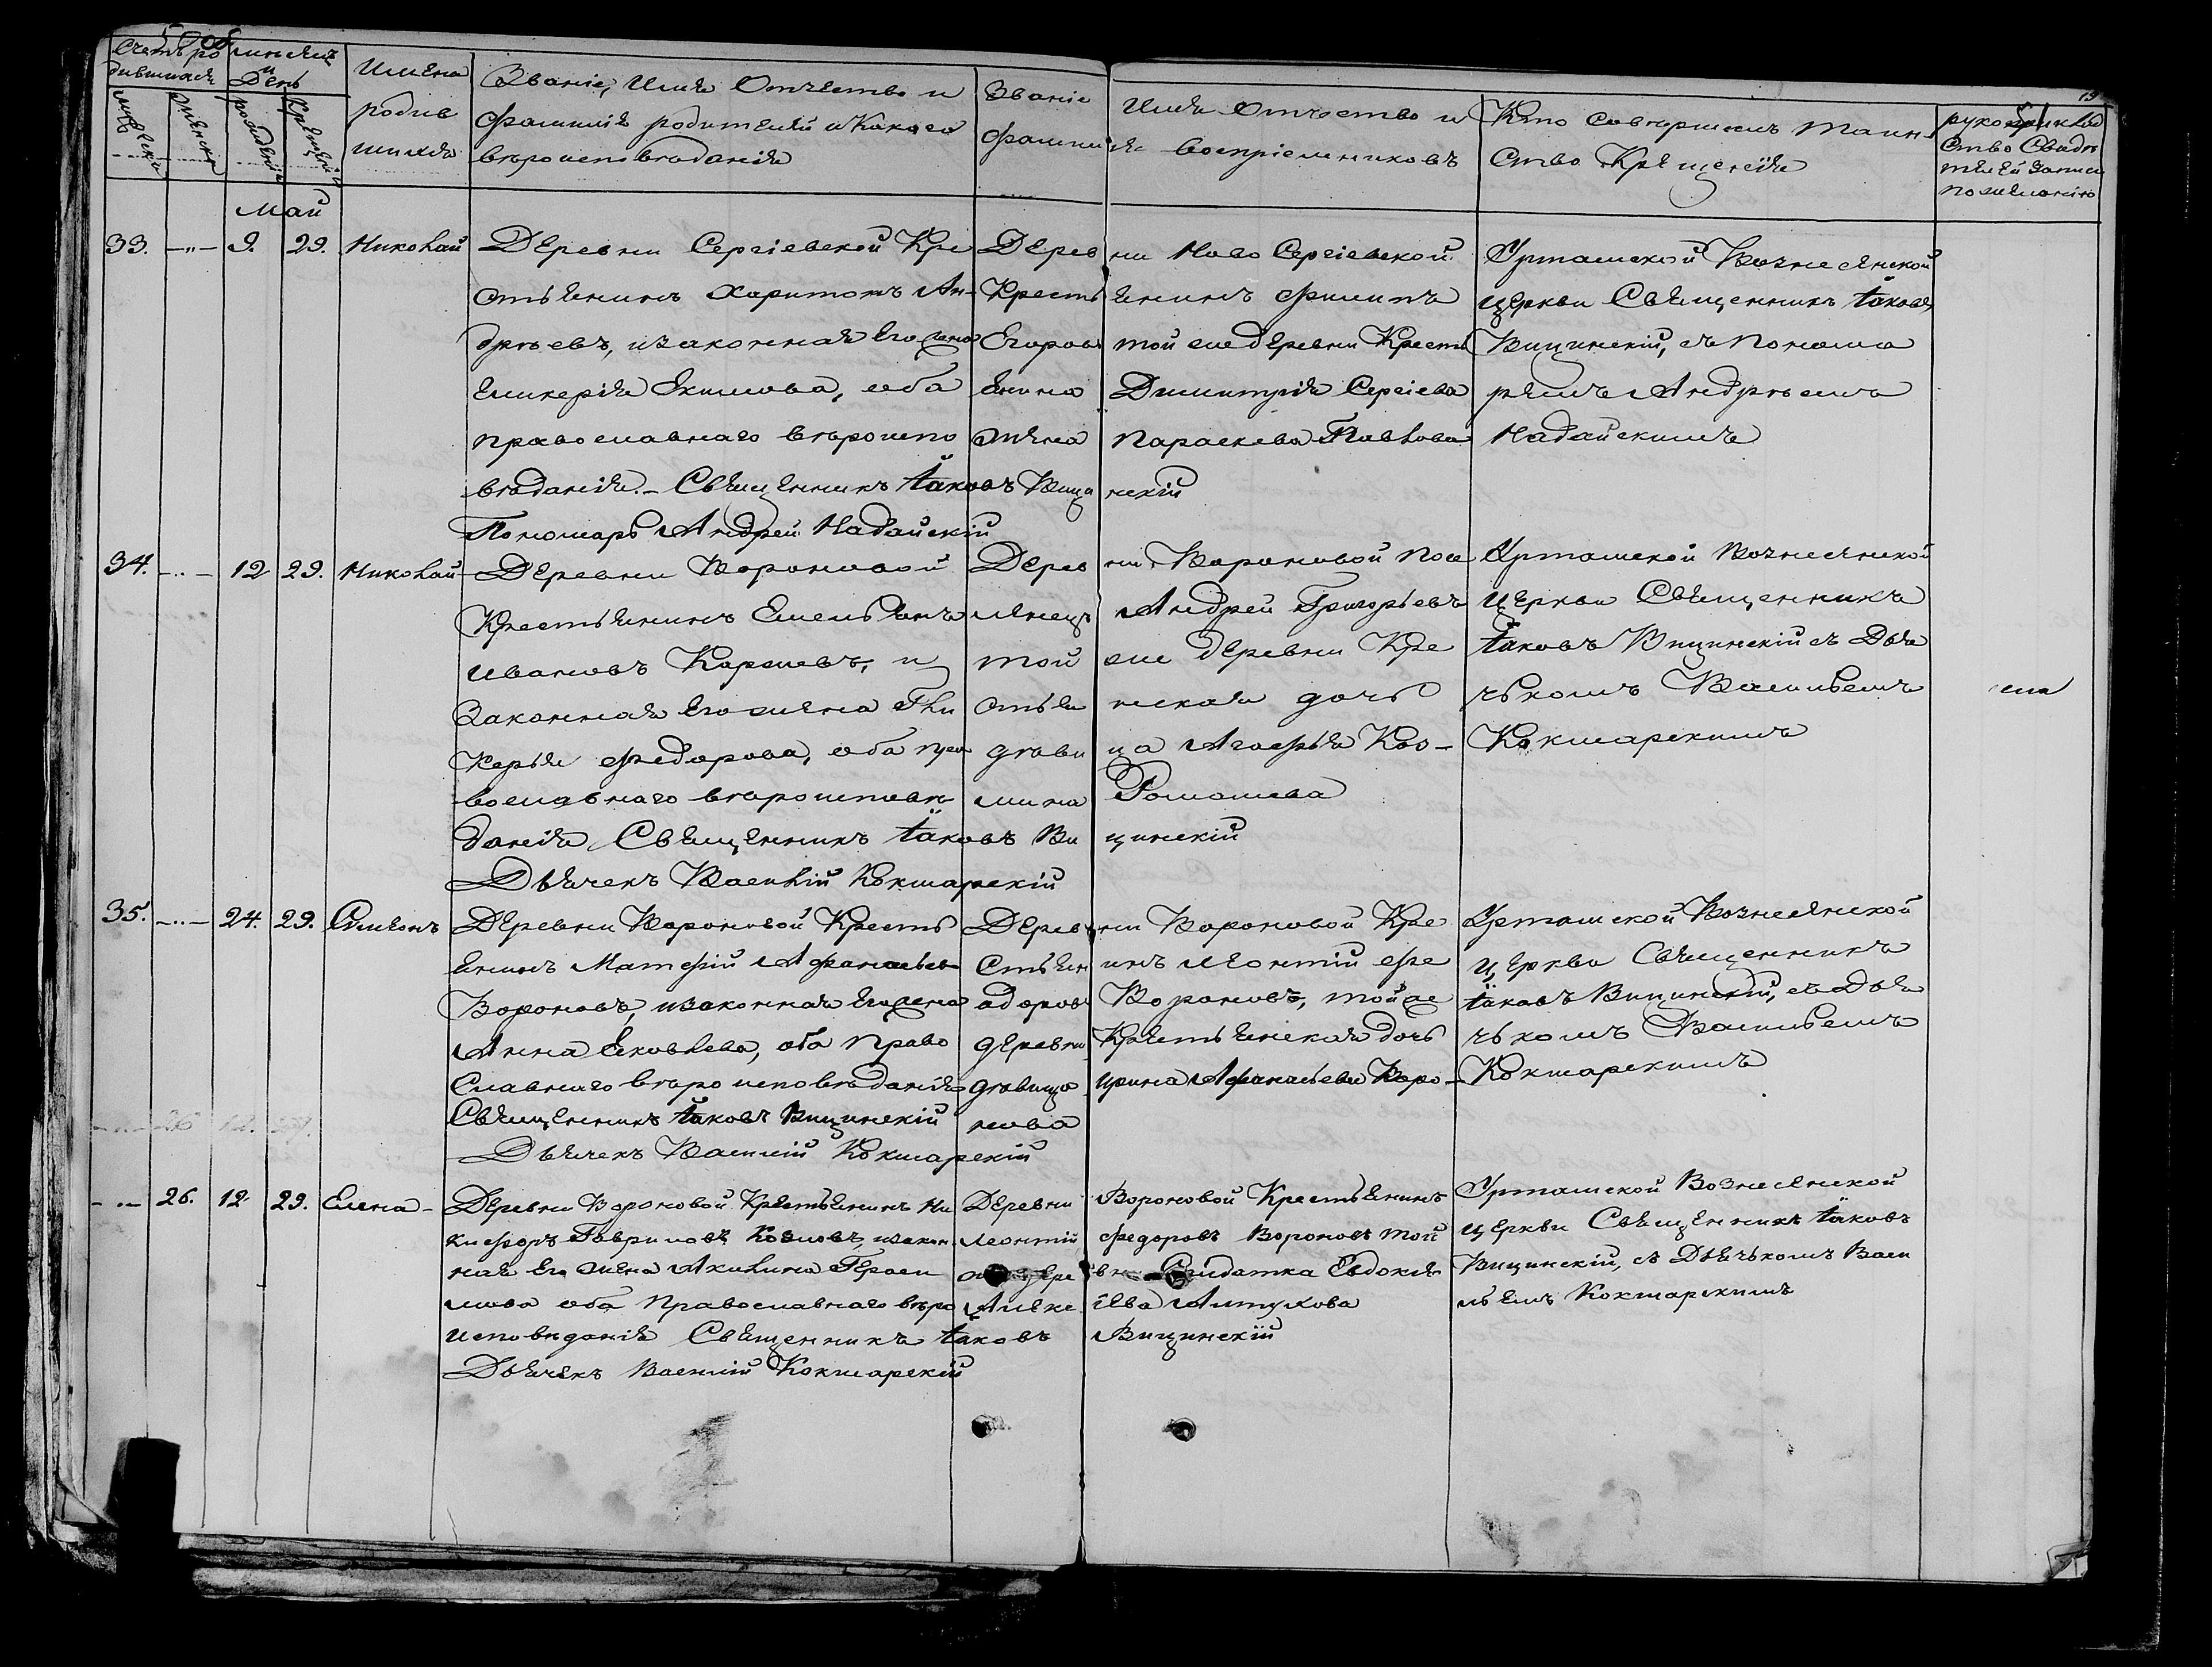 Счетъ ро
дившихся
Мѣсяцъ
и
День
Имена
родив
шихся
Званіе, Имя Отчество и
фамилія родителей и Какого
вѣроисповѣданія
Званіе Имя Отчество и
фамилия воспріемниковъ
Кто Совершилъ Таин-
ство Крещенія
рукоприклад
ство Свидѣ
телей записи
по желанію
мужеска
женска
рожденія
крещенія
19
Май
33. —"— 9. 29. Николай
Деревни Сергіевской Кре
стьянинъ Харитонъ Ан-
дреевъ, и законная Его жена
Гликерія Якимова, оба
православнаго вѣроиспо
вѣданія.— Священникъ Іаковъ Вицинскій
Пономарь Андрей Надайскій
Деревни Ново Сергіевской
Крестьянинъ Филипъ
Егоровъ той же деревни Кресть
янина Димитрія Сергіева
жена Параскева Павлова
Урташской Вознесенской
церкви Священникъ Іаковъ
Вицинскій, съ Понома
ремъ Андреемъ
Надайскимъ
34. —"— 12 29. Николай
Деревни Вороновой
Крестьянинъ Емельянъ
Ивановъ Карпевъ, и
Законная Его жена Гли
керья Федорова, оба пра
вославнаго вѣроисповѣ
данія Священникъ Іаковъ Вицинскій
Дьячекъ Василій Кокшарскій
Деревни Вороновой Посе
лянецъ Андрей Григорьевъ
той же деревни Кре
стьянская дочь
дѣвица Агафья Коз-
мина Ромашева
Урташской Вознесенской
Церкви Священникъ
Іаковъ Вицинскій съ Дья
чькомъ Васильемъ
Кокшарскимъ
35. —"— 24. 29. Симеонъ
Деревни Вороновой Кресть
янинъ Матфій Афанасьевъ
Вороновъ, и законная Его жена
Анна Яковлева, оба Право
славнаго вѣроисповѣданія
Священникъ Іаковъ Вицинскій
Дьячекъ Василій Кокшарскій
Деревни Вороновой Кре
стьянинъ Леонтій Фе
одоровъ Вороновъ, той же
деревни Крестьянская дочь
дѣвица Ирина Афанасьева Воро-
нова
Урташской Вознесенской
Церкви Священникъ
Іаковъ Вицинскій, съ дья
чькомъ Васильемъ
Кокшарскимъ
—"— 26. 12 29. Елена
Деревни Вороновой Крестьянинъ Ни
кифоръ Гавриловъ Козловъ, и закон
ная Его жена Акилина Гераси
мова оба Православнаго вѣро
исповѣданія Священникъ Іаковъ Вицинскій
Дьячекъ Василій Кокшарскій
Деревни Вороновой Крестьянинъ
Леонтій Федоровъ Вороновъ той
Солдатка Евдокія
Алексіева Алтухова
Урташской Вознесенской
церкви Священникъ Іаковъ
Вицинскій, съ Дьячькомъ Васи
льемъ Кокшарскимъ